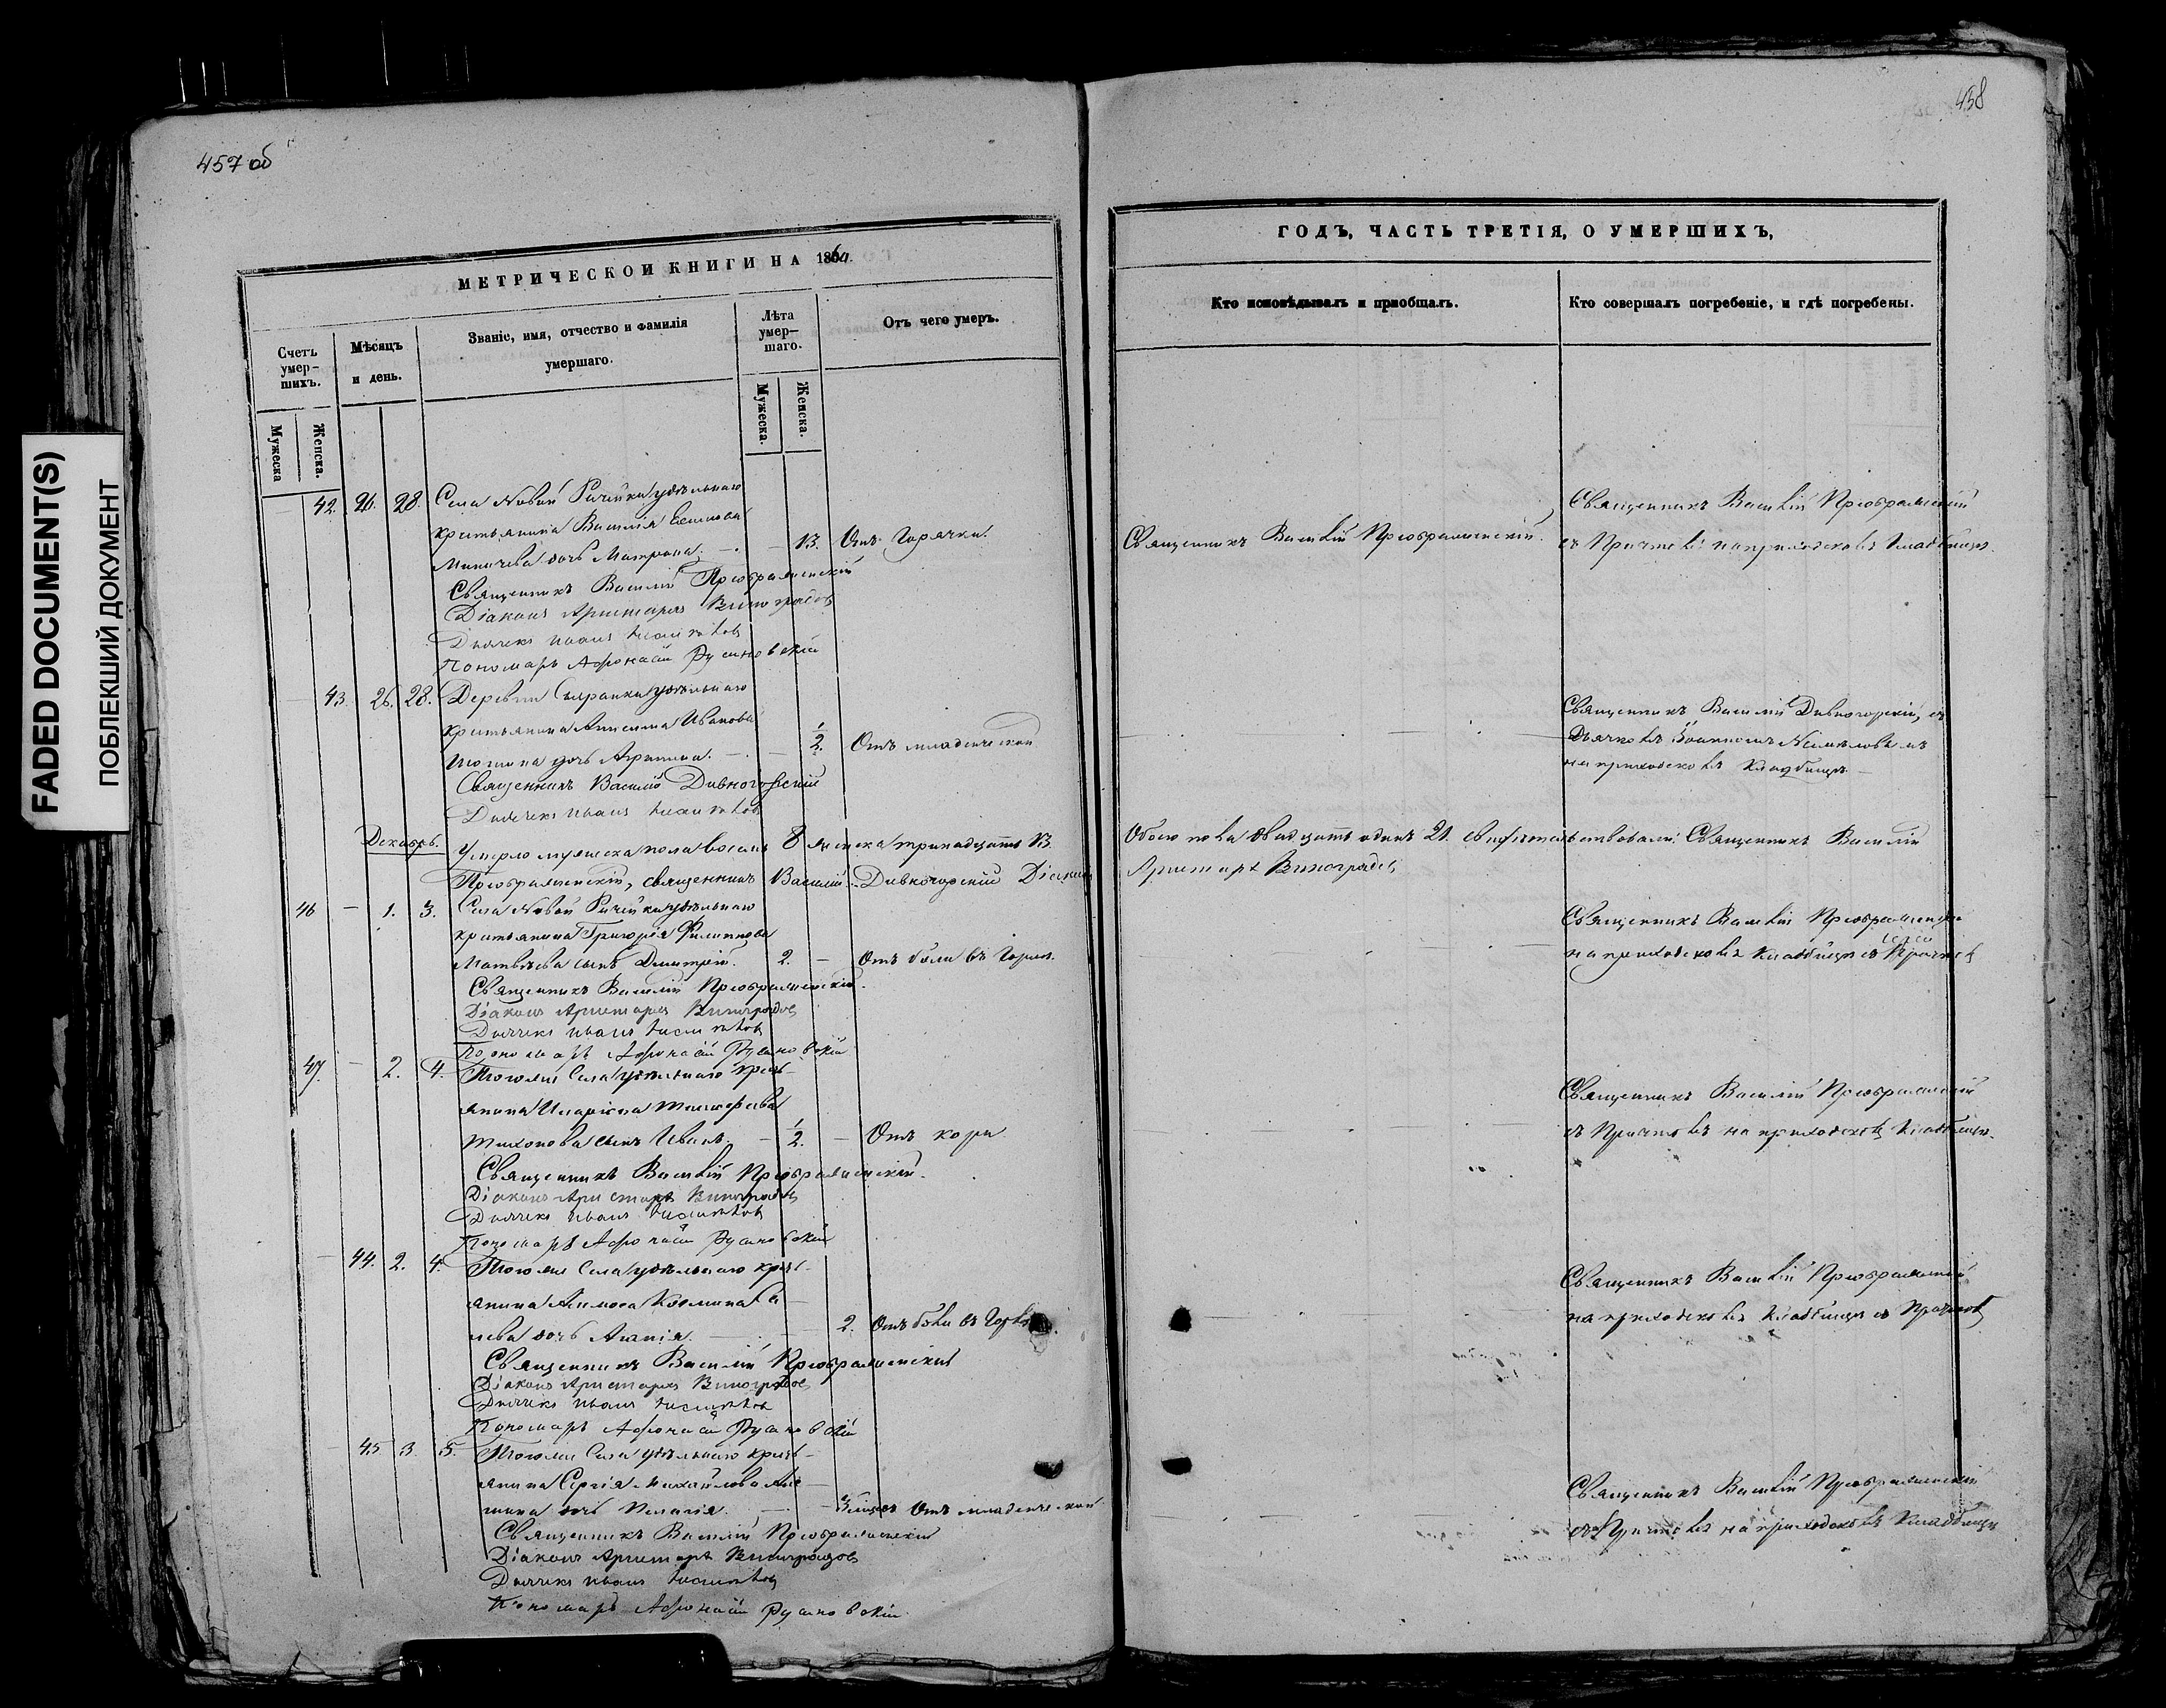 457 об
458
FADED DOCUMENT(S)
ПОБЛЕКШИЙ ДОКУМЕНТ
МЕТРИЧЕСКОЙ КНИГИ НА 1860.
Счетъ умер-шихъ.
Мѣсяцъ и день.
Званіе, имя, отчество и фамилія
умершаго.
Лѣта умер-шаго.
Отъ чего умеръ.
Мужеска
Женска.
Мужеска.
Женска.
42. 26. 28. Села Новой Рачейки удѣльнаго
крестьянина Василія
дочь Матрона. 13. Отъ горячки.
Священникъ Василій Преображенскій
Діаконъ Аристархъ Виноградовъ
Дьячекъ Иванъ
Пономарь Афонасій
43. 26. 28. Деревни Сызранки удѣльнаго
крестьянина Анисима Иванова
дочь 1/2. Отъ младенческой
Священникъ Василій Дивногорскій
Дьячекъ Иванъ
Умерло мужеска пола восемь 8 женска тринадцать 13.
Преображенскій, священникъ Василій Дивногорскій Діаконъ
Декабрь.
46 — 1. 3. Села Новой Рачейки удѣльнаго
крестьянина Григорія Филиппова
Матвѣева сынъ Дмитрій. 2. — Отъ боли въ горлѣ.
Священникъ Василій Преображенскій.
Діаконъ Аристархъ Виноградовъ
Дьячекъ Иванъ
Пономарь Афонасій
47. — 2. 4. Тогоже Села удѣльнаго кресть-
янина
Тихонова сынъ Иванъ. — 1/2. — Отъ кори
Священникъ Василій Преображенскій.
Діаконъ Аристархъ Виноградовъ
Дьячекъ Иванъ
Пономарь Афонасій
44. 2. 4. Тогоже Села удѣльнаго кресть-
янина
дочь 2. Отъ боли въ горлѣ.
Священникъ Василій Преображенскій
Діаконъ Аристархъ Виноградовъ
Дьячекъ Иванъ
Пономарь Афонасій
45 3. 5. Тогоже Села удѣльнаго кресть-
янина Сергія Михайлова
дочь Пелагія. Отъ младенческой
Священникъ Василій Преображенскій
Діаконъ Аристархъ Виноградовъ
Дьячекъ Иванъ
Пономарь Афонасій
ГОДЪ, ЧАСТЬ ТРЕТІЯ, О УМЕРШИХЪ,
Кто исповѣдывалъ и пріобщалъ.
Кто совершалъ погребеніе, и гдѣ погребены.
Священникъ Василій Преображенскій.
Священникъ Василій Преображенскій
съ Причтомъ на приходскомъ кладбищѣ.
Священникъ Василій Дивногорскій, съ
Дьячкомъ
на приходскомъ кладбищѣ
Обоего пола двадцать одинъ 21. свидѣтельствовали: Священникъ Василій
Аристархъ Виноградовъ
Священникъ Василій Преображенскій
на приходскомъ кладбищѣ съ Причтомъ
Священникъ Василій Преображенскій
съ Причтомъ на приходскомъ кладбищѣ.
Священникъ Василій Преображенскій
на приходскомъ кладбищѣ съ Причтомъ
Священникъ Василій Преображенскій
съ Причтомъ на приходскомъ кладбищѣ